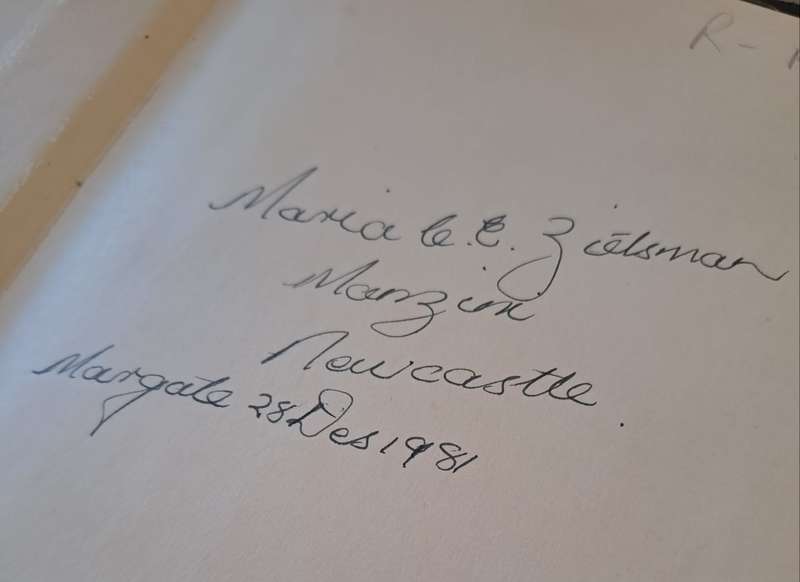 R-
Maria le. E. Zietsman
Manzini
Newcastle.
Margate 28 Des 1981